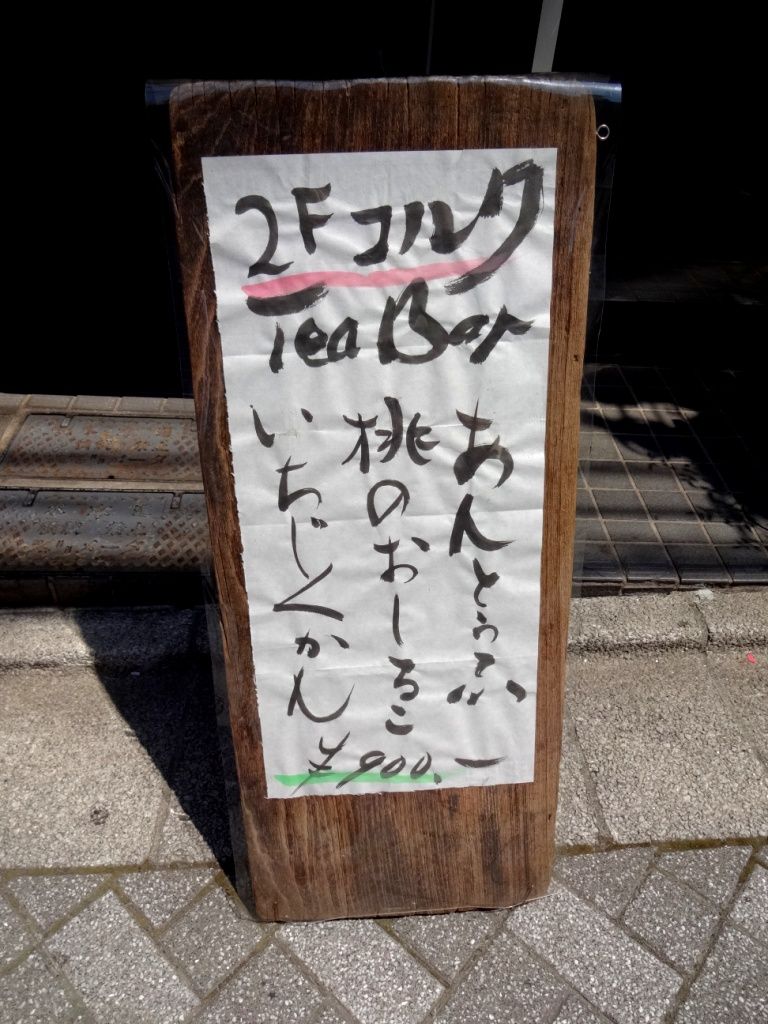 2F コルク
Tea Bar
あんとうふ
桃のおしるこ
いちじくかん
¥900.ー